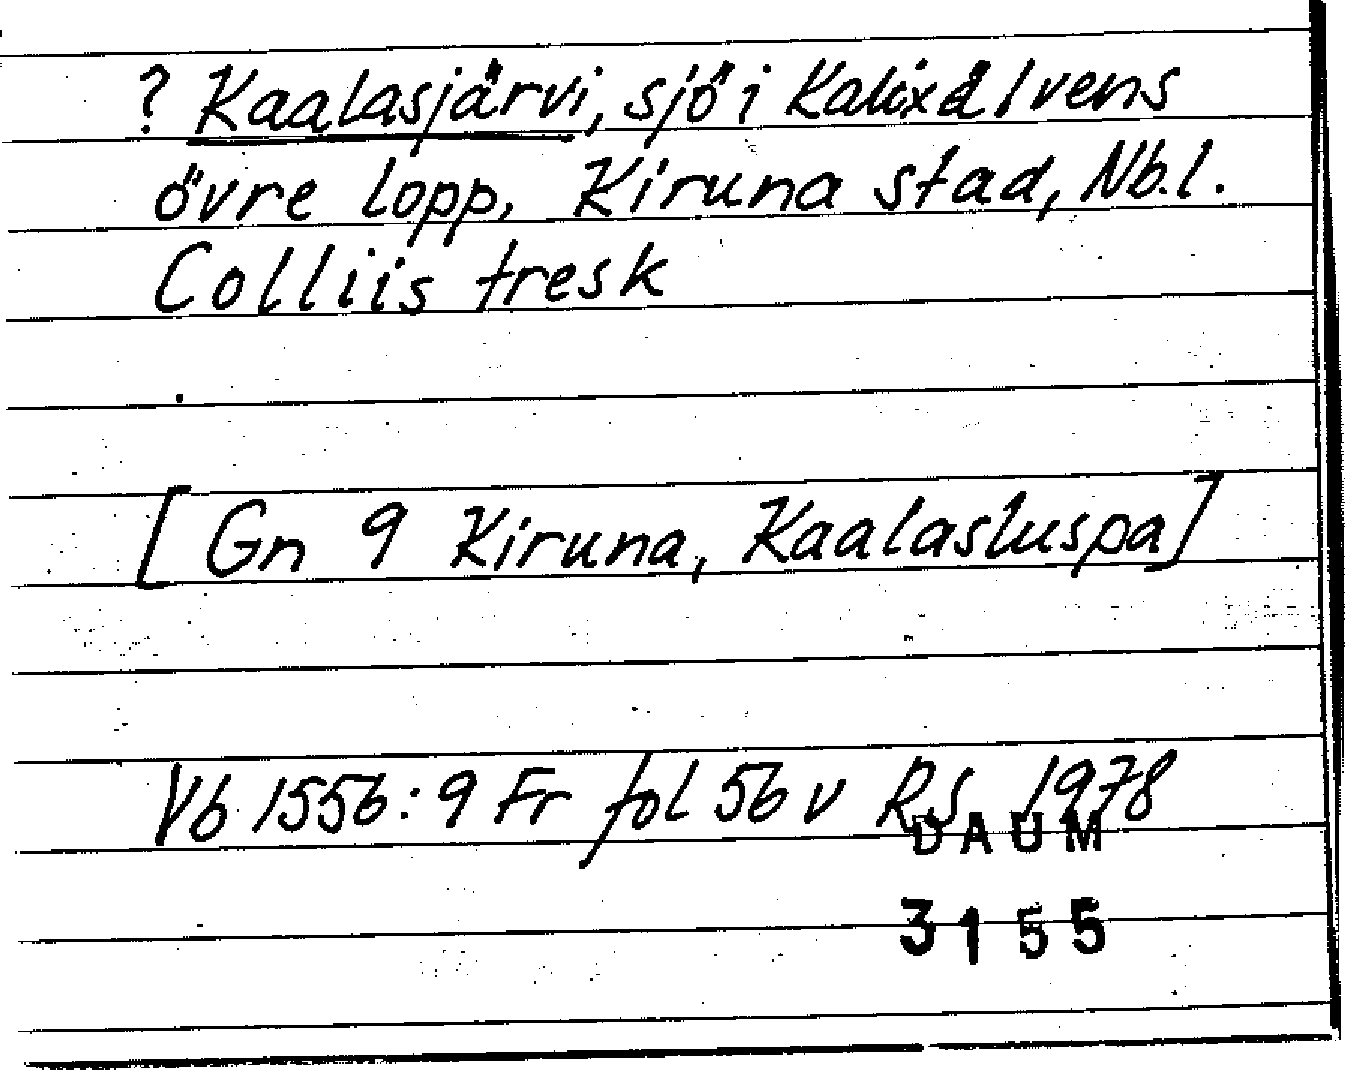 ? Kaalasjärvi, sjö i Kalixälvens
övre lopp, Kiruna stad, Nb.l.
Colliis tresk
[Gn 9 Kiruna, Kaalasluspa]
Vb 1556:9 Fr fol 56 v RS 1978
DAUM
3155